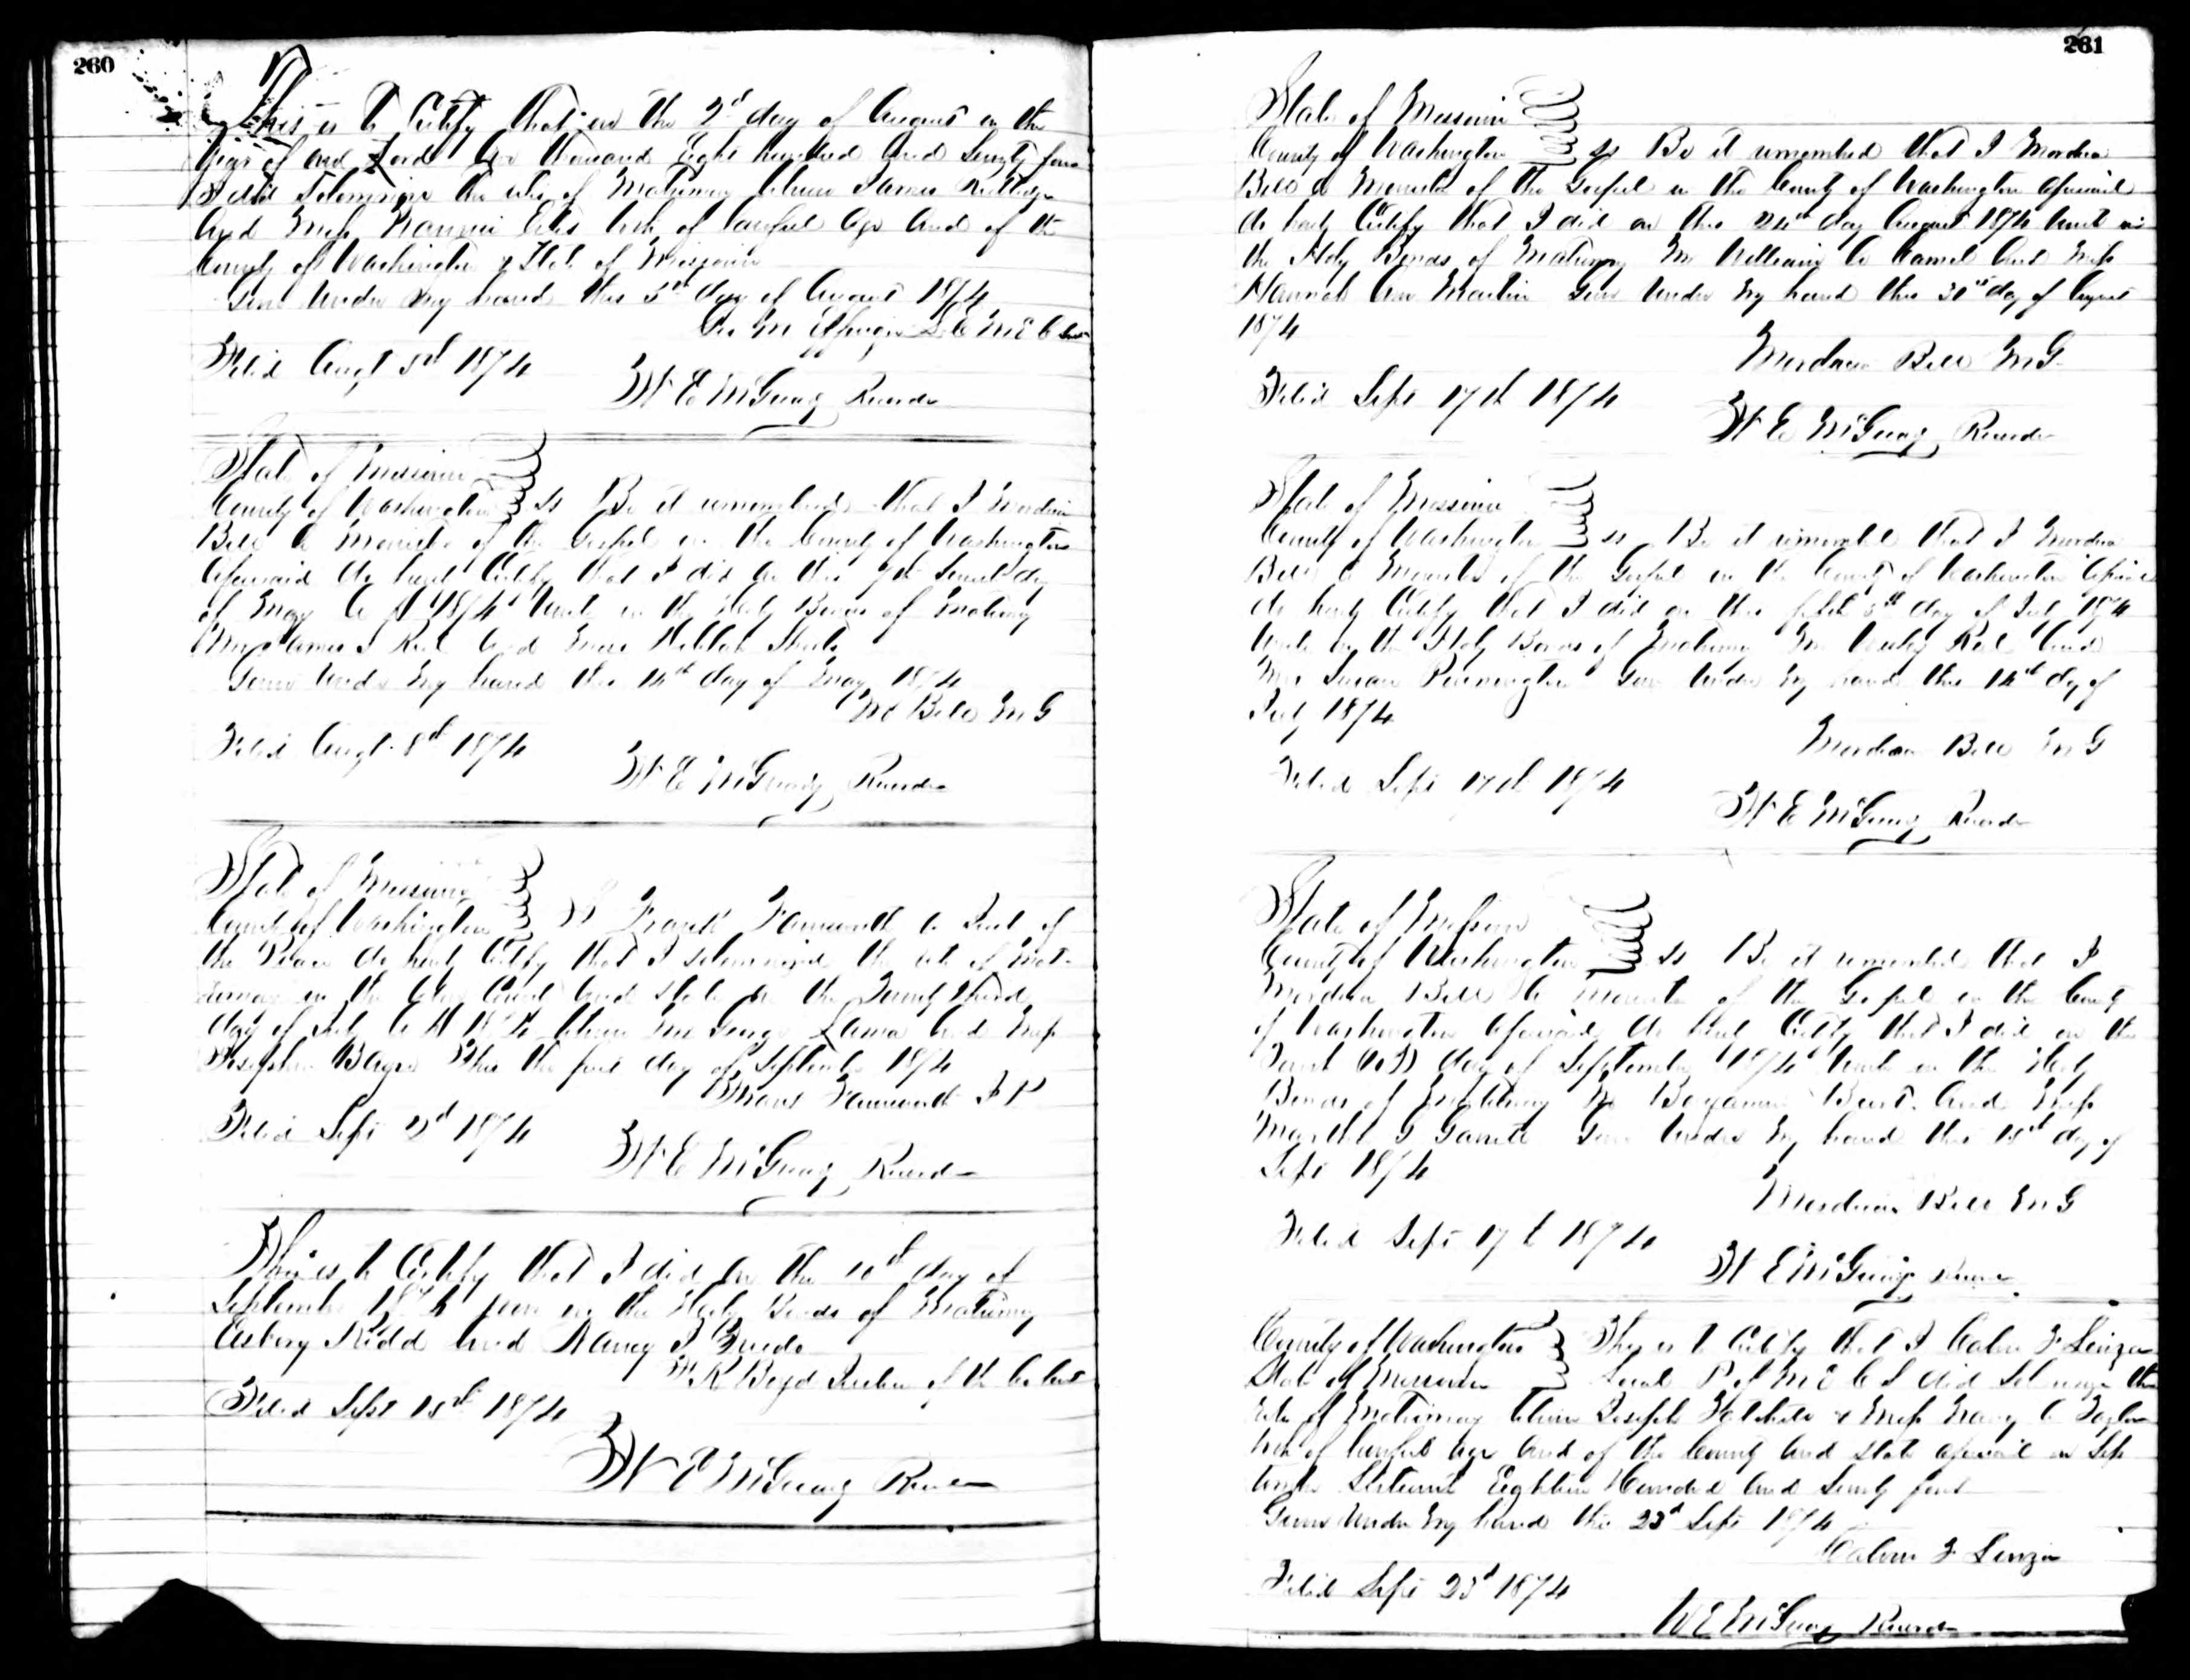 260
This is to Certify that on the 2d day of August in the
year of our Lord One thousand Eight hundred and Seventy four
I did Solemnize the rites of Matrimony between James Rutledge
And Miss Nannie both of lawful age and of the
County of Washington & State of Missouri
Given under my hand this 3rd day of August 1874
Filed Augt 3rd 1874
W E McGready Recorder
State of Missouri
County of Washington ss Be it remembered that I Mordecai
Bell a Minister of the Gospel in the County of Washington
aforesaid do hereby Certify that I did on the day
of May A D 1874 Unite in the Holy Bonds of Matrimony
Mr James and Miss
Given Under my hand this 14th day of May 1874
M Bell M G
Filed Augt 8th 1874
W E McGready Recorder
State of Missouri
County of Washington Frank Farnworth a Just of
the Peace do hereby Certify that I solemnized the rite of Mat-
rimony in the above County and State on the Twenty third
day of July A D 1874 between Mr George and Miss
Josephine This the first day of September 1874
Frank Farnworth J P
Filed Sept 2d 1874
W E McGready Recorder
This is to Certify that I did on the 10th day of
September 1874 join in the Holy Bonds of Matrimony
Asbery Kidd and Nancy J
F R Boyd of the
Filed Sept 15th 1874
W E McGready Recorder
261
State of Missouri
County of Washington ss Be it remembered that I Mordecai
Bell a Minister of the Gospel in the County of Washington aforesaid
do hereby Certify that I did on the 24th day August 1874 Unite in
the Holy Bonds of Matrimony Mr William and Miss
Hannah Ann Martin Given Under my hand this 31st day of August
1874
Mordecai Bell M G
Filed Sept 17th 1874
W E McGready Recorder
State of Missouri
County of Washington ss Be it remembered that I Mordecai
Bell a Minister of the Gospel in the County of Washington aforesaid
do hereby Certify that I did on the fifth 5th day of July 1874
Unite in the Holy Bonds of Matrimony Mr and
Susan Pennington Given Under my hand this 14th day of
July 1874
Mordecai Bell M G
Filed Sept 17th 1874
W E McGready Recorder
State of Missouri
County of Washington ss Be it remembered that I
Mordecai Bell a Minister of the Gospel in the County
of Washington aforesaid do hereby Certify that I did on the
day of September 1874 Unite in the Holy
Bonds of Matrimony Mr Benjamin and Miss
Martha Given Under my hand this 15th day of
Sept 1874
Mordecai Bell M G
Filed Sept 17th 1874
W E McGready Recorder
County of Washington This is to Certify that I Calvin
State of Missouri Local P of M E C S did Solemnize the
rites of Matrimony between Joseph & Miss Mary
both of lawful age and of the County and State aforesaid on Sep
tember Sixteenth Eighteen Hundred and Seventy four
Given under my hand this 23d Sept 1874
Calvin
Filed Sept 23d 1874
W E McGready Recorder